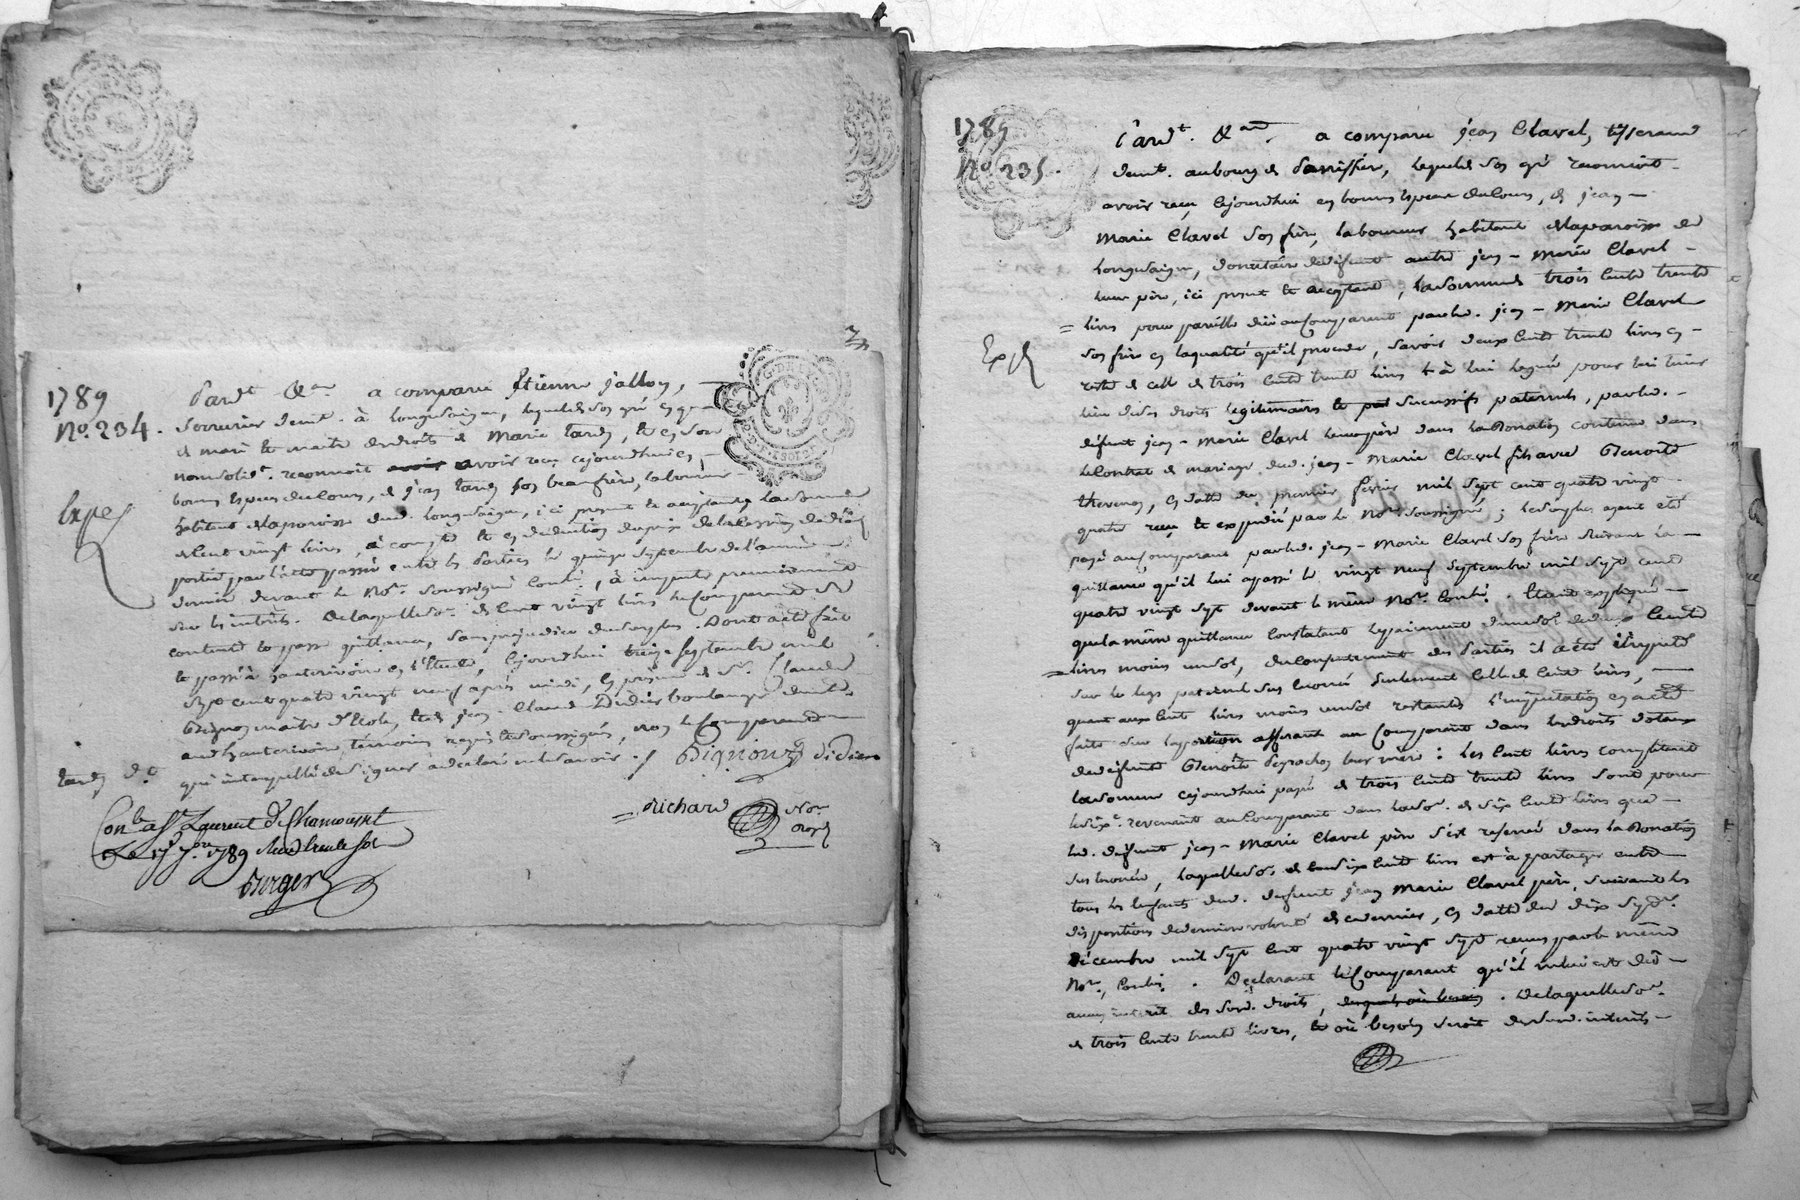 1789
No. 234.
Pardt &a a comparu Etienne jalloy,
Serrurier demt. à Longesaigne, lequel de son gré en qualité
de mari et maitre des droits de Marie tardy, et en son
nom solidt. reconnoit avoir avoir reçu cejourdhui en
bonnes especes de cours, de jean tardy son beaufrère, laboureur
habitant de la paroisse dud. Longesaigne, ici présent et acceptant, la somme
de cent vingt livres, à compte et en déduction du prix de la cession de droits
portée par l'acte passé entre les parties le quinze septembre de l'année
dernière devant le Nore. soussigné Conlé, à imputer premièrement
sur les intérêts. De laquelle some. de cent vingt livres le Comparant se
contente et passe quittance, sans préjudice du surplus. Dont acte fait
et passé à hauterivoire en l'Etude, cejourdhui treize septembre mil
sept cent quatre vingt neuf après midi, en présence de Sr. Claude
Pignoux maitre d'école, et de jean-Claude Didier boulanger demt.
aud. hauterivoire, témoins requis et soussignés, non le Comparant
qui interpellé de signer a déclaré ne le savoir. /
Expé
tardy dt
Pignoux Didier
= Richard Nore.
Royal
Conlé à St. Laurent de Chamousset
Le 17 7bre 1789 Reçu trente sols
Berger
1789
No. 235.
Pardt. &a. a comparu jean Clavel, tisserand
demt. au bourg de Panissière, lequel de son gré reconnoit
avoir reçu cejourdhui en bonnes especes de cours, de jean-
Marie Clavel son frère, laboureur habitant de la paroisse de
Longesaigne, donataire de défunt autre jean-Marie Clavel-
leur père, ici présent et acceptant, la somme de trois cents trente
= livres pour pareille due au Comparant par led. jean-Marie Clavel
son frère en la qualité qu'il procede, savoir deux cents trente livres en-
reste de celle de trois cents trente livres + à lui leguée pour lui tenir
lieu de ses droits legitimaires et pat successifs paternels, par led.-
défunt jean-Marie Clavel leur père dans la Donation contenue dans
le Contrat de mariage dud. jean-Marie Clavel fils avec Benoite
thevenon, en datte du premier février mil sept cent quatre vingt-
quatre reçu et expédié par le Nore. soussigné; le surplus ayant été
payé au Comparant par led. jean-Marie Clavel son frère suivant la-
quittance qu'il lui a passé le vingt neuf septembre mil sept cent
quatre vingt sept devant le même Nore. Conlé. Etant expliqué-
que la même quittance constatant le payement d'une some. de deux cents
= livres moins un sol, du consentement des parties il a été imputé
sur le legs paternel sus énoncé seulement celle de cent livres,
quant aux cent livres moins un sol restantes l'imputation en a été
faite sur la portion afferant au Comparant dans les droits dotaux
de défunte Benoite Peyrachon leur mère: les cent livres complétant
la somme cejourdhui payée de trois cents trente livres sont pour
le sixe. revenant au Comparant dans la some. de six cents livres que-
led. défunt jean-Marie Clavel père s'est reservée dans la Donation
sus énoncée, laquelle some. de six cents livres est à partager entre
tous les enfants dud. defunt jean Marie Clavel père, suivant les
dispositions de dernière volonté de ce dernier, en datte du dix sept.
Décembre mil sept cent quatre vingt sept reçues par le même
Nore., Conlé. Déclarant le Comparant qu'il ne lui est dû-
aucun intérêt des susd. droits, desquels où besoin. De laquelle some.
de trois cents trente livres, et où besoin seroit des susd. intérêts-
Expé